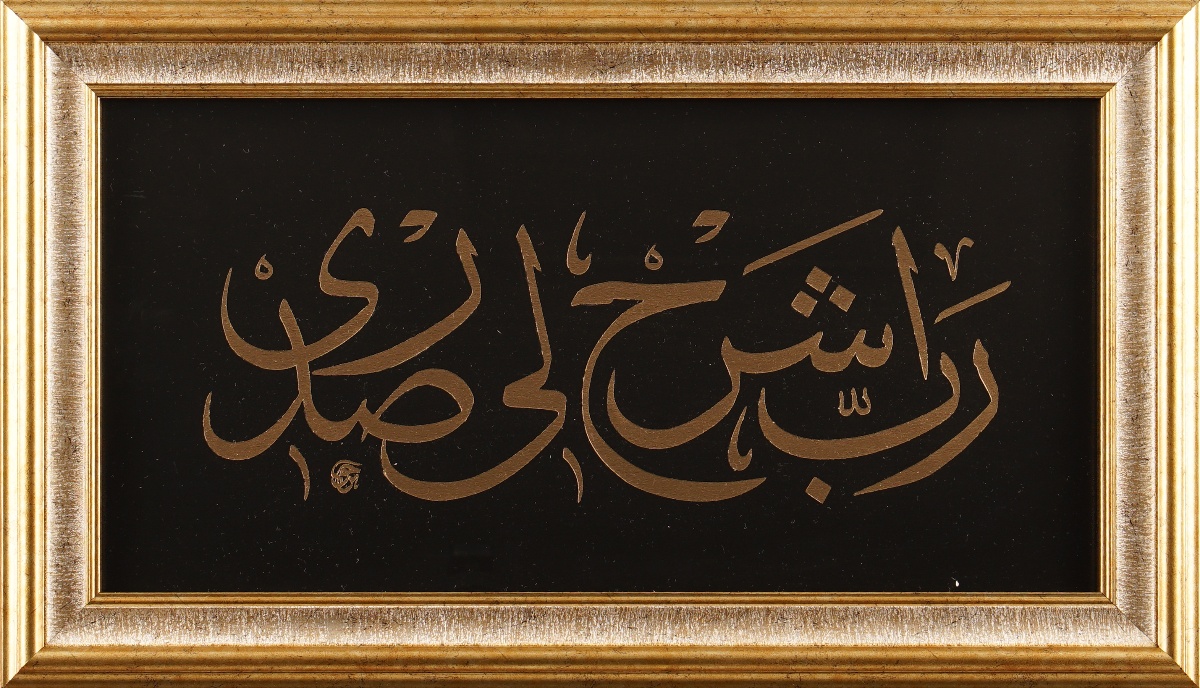 رب اشرح لى صدرى